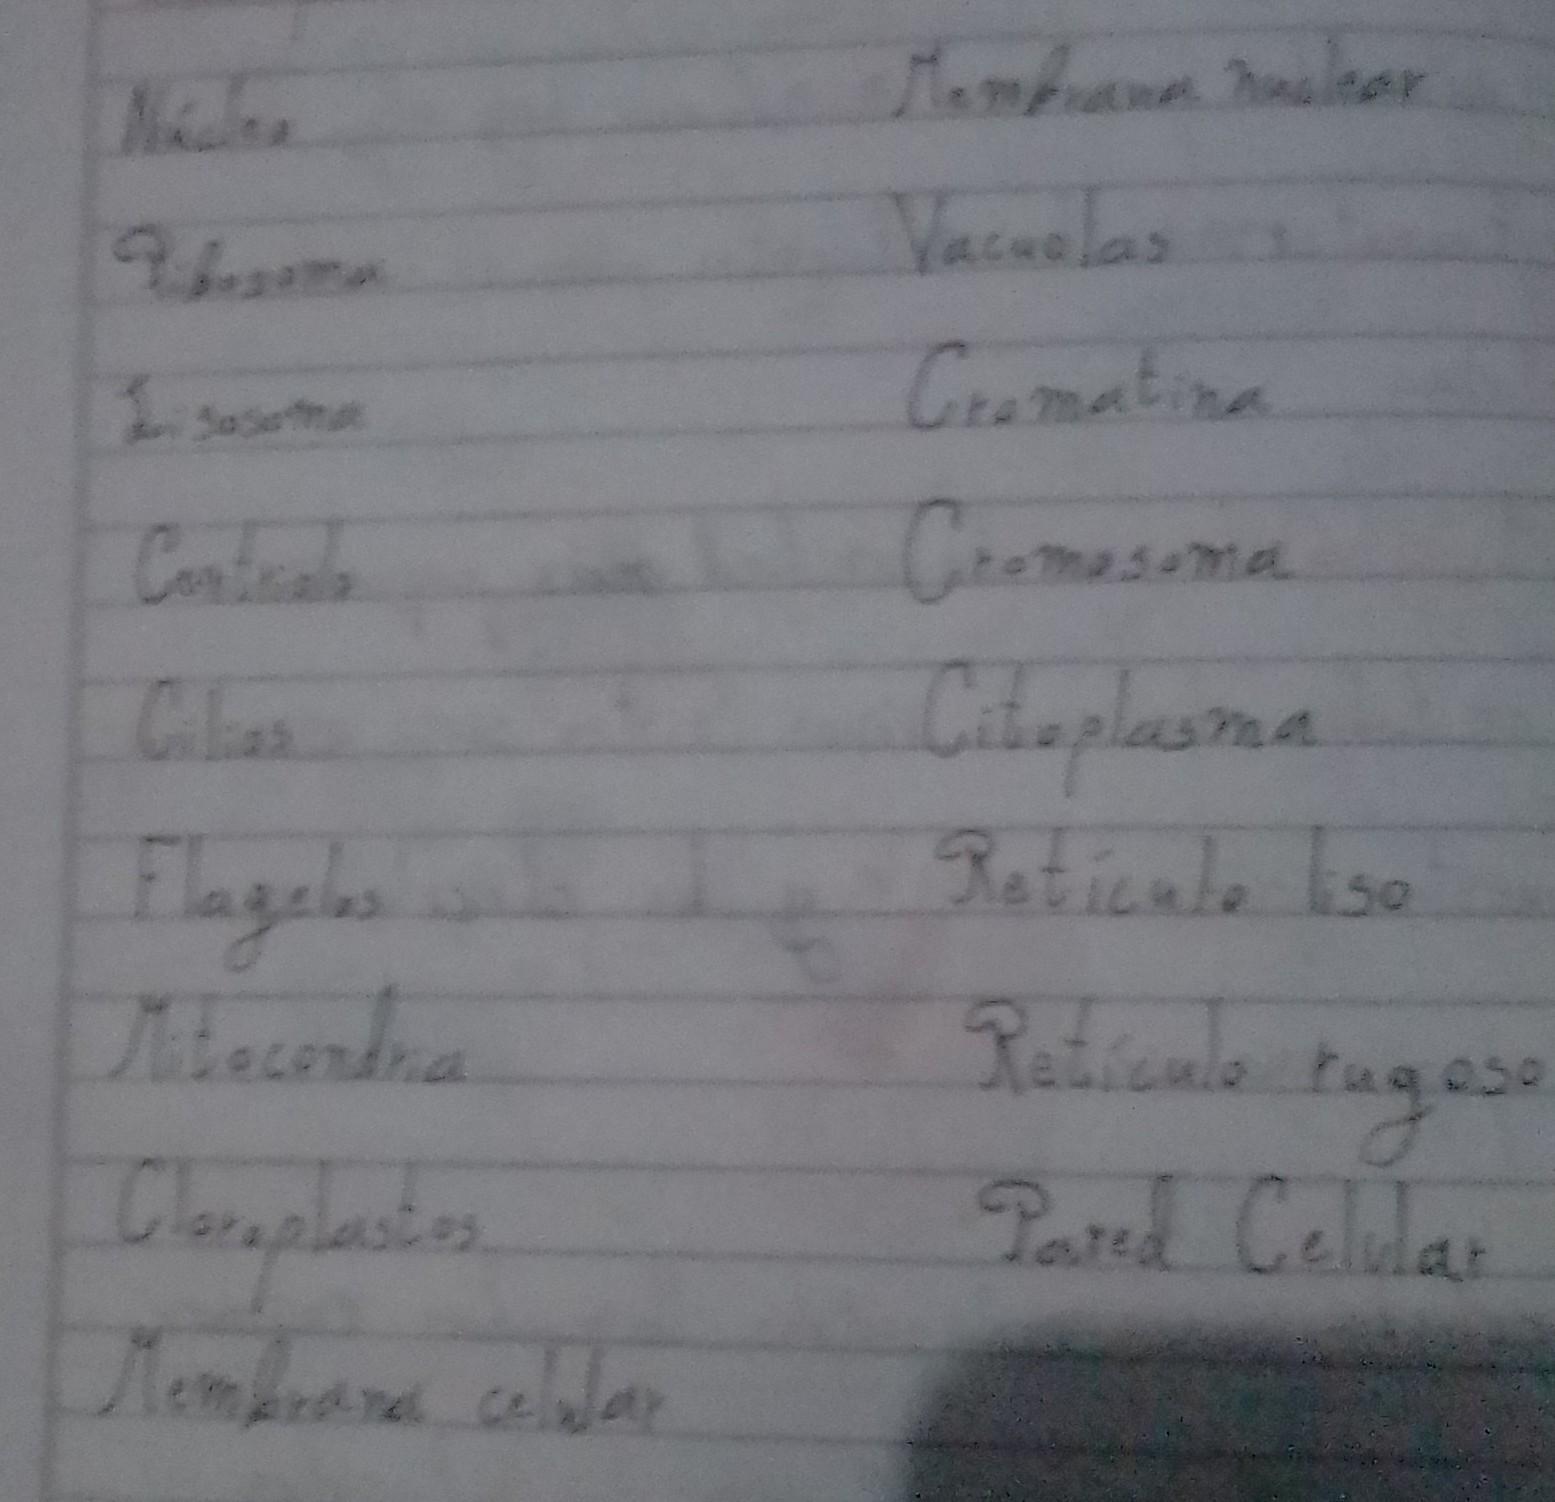 Núcleo
Membrana nuclear
Ribosoma
Vacuolas
Lisosoma
Cromatina
Centriolo
Cromosoma
Cilios
Citoplasma
Flagelos
Retículo liso
Mitocondria
Retículo rugoso
Cloroplastos
Pared Celular
Membrana celular